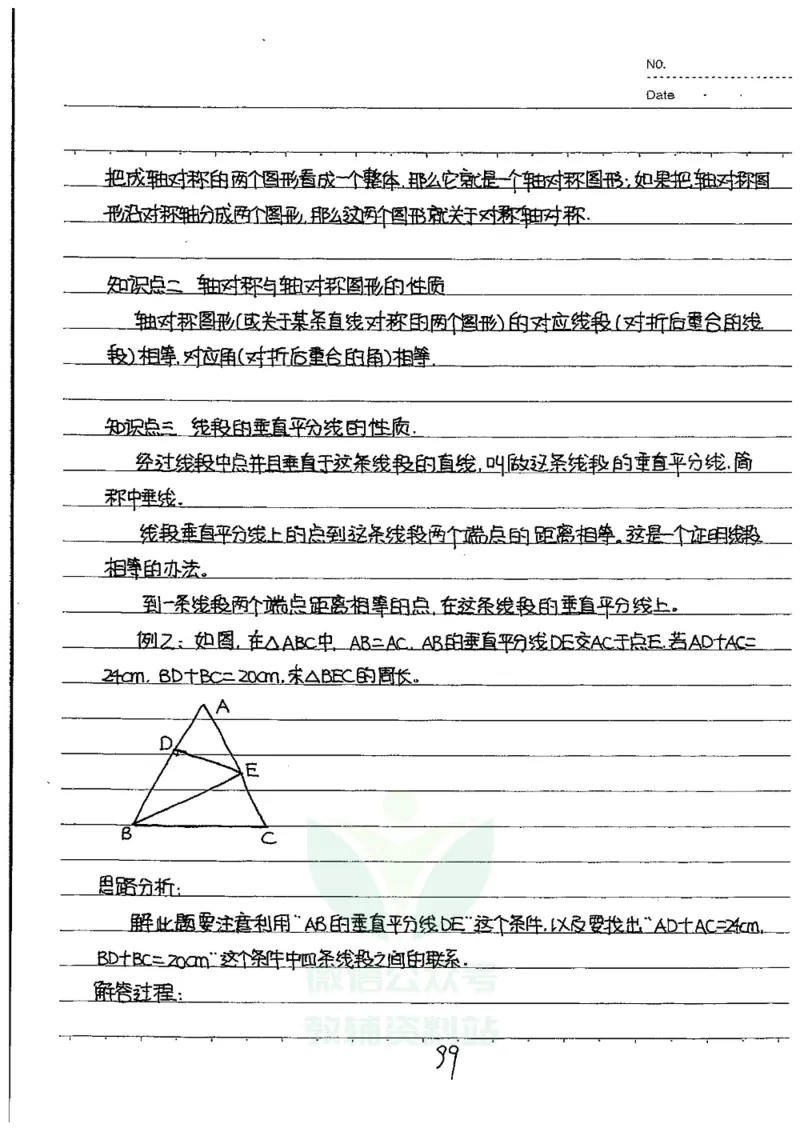 NO.
Date
把成轴对称的两个图形看成一个整体,那么它就是一个轴对称图形;如果把轴对称图
形沿对称轴分成两个图形,那么这两个图形就关于对称轴对称.
知识点二 轴对称与轴对称图形的性质
轴对称图形(或关于某条直线对称的两个图形)的对应线段(对折后重合的线
段)相等,对应角(对折后重合的角)相等.
知识点三 线段的垂直平分线的性质.
经过线段中点并且垂直于这条线段的直线,叫做这条线段的垂直平分线.简
称中垂线.
线段垂直平分线上的点到这条线段两个端点的距离相等。这是一个证明线段
相等的办法。
到一条线段两个端点距离相等的点,在这条线段的垂直平分线上。
例2:如图,在△ABC中,AB=AC,AB的垂直平分线DE交AC于点E.若AD+AC=
24cm,BD+BC=20cm,求△BEC的周长。
A
D
E
B
C
思路分析:
解此题要注意利用"AB的垂直平分线DE"这个条件,以及要找出"AD+AC=24cm,
BD+BC=20cm"这个条件中四条线段之间的联系.
微信公众号
解答过程:
教辅资料站
99